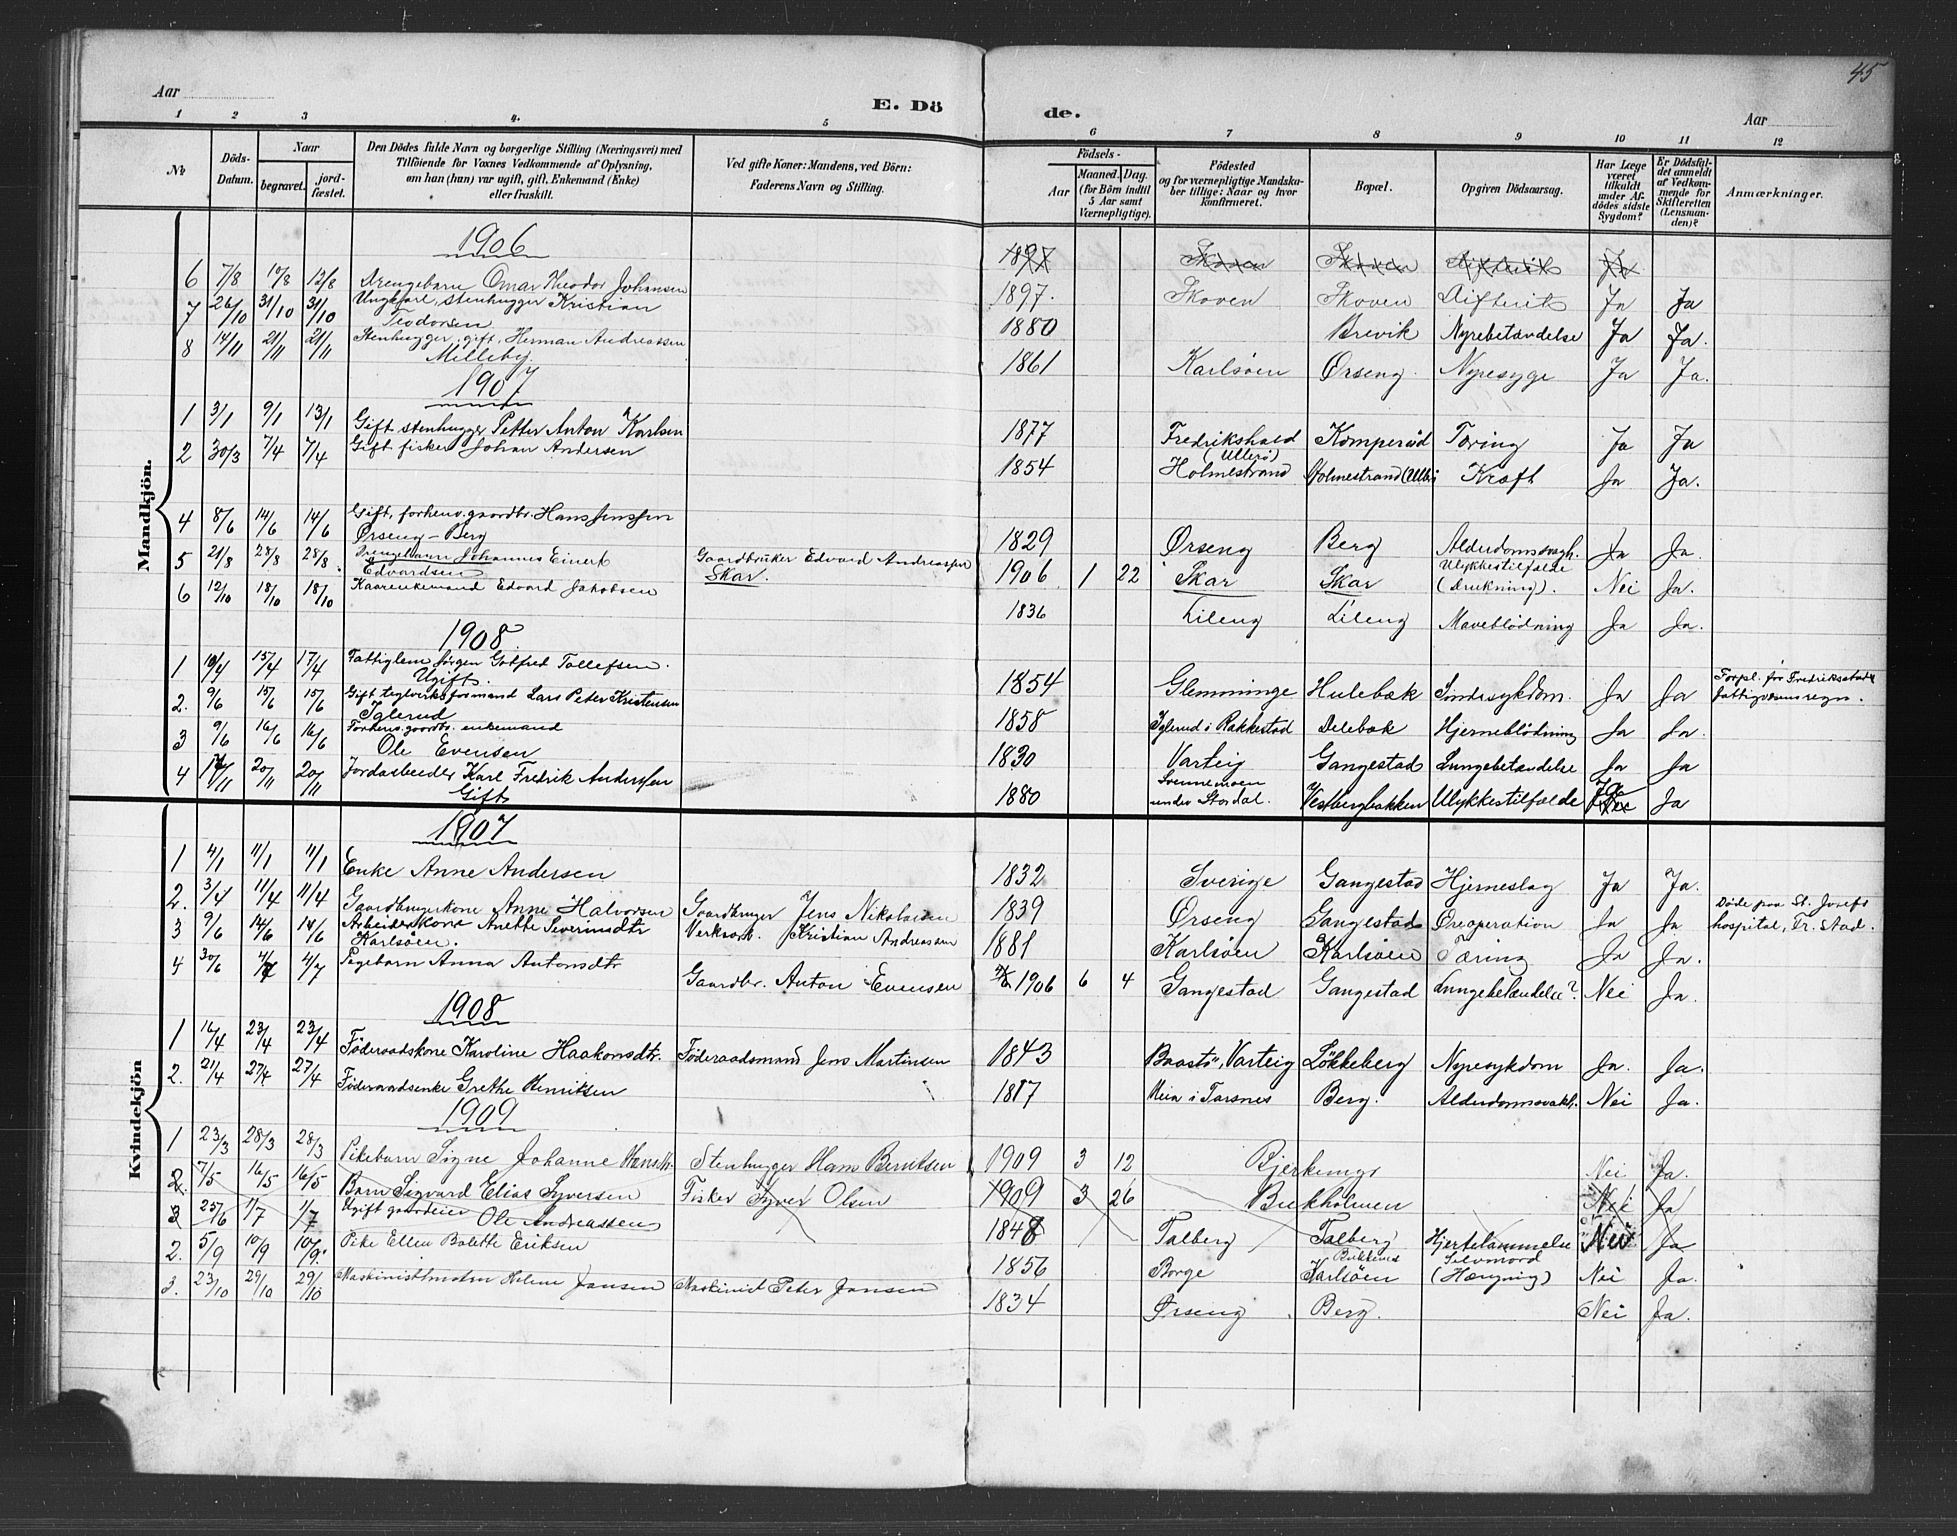 45
Aar
E. Dö
de.
Aar
1 2 3 4. 5 6 7 8 9 10 11 12
No
Döds-Datum.
Naar
begravet.
jord-fæstet.
Den Dödes fulde Navn og borgerlige Stilling (Næringsvei) med
Tilföiende for Voxnes Vedkommende af Oplysning,
om han (hun) var ugift, gift, Enkemand (Enke)
eller fraskilt.
Ved gifte Koner: Mandens, ved Börn:
Faderens Navn og Stilling.
Födsels-
Aar
Maaned. Dag.
(for Börn indtil
5 Aar samt
Værnepligtige).
Födested
og for værnepligtige Mandska-
ber tillige: Naar og hvor
konfirmeret.
Bopæl.
Opgiven Dödsaarsag.
Har Læge
været
tilkaldt
under Af-
dödes sidste
Sygdom?
Er Dödsfal-
det anmeldt
af Vedkom-
mende for
Skifteretten
(Lensman-
den)?
Anmærkninger.
Mandkjön.
1906
1897 Skoven Skoven Difterit Ja
6 7/8 10/8 12/8 Drengebarn Omar Theodor Johansen 1897. Skoven Skoven Difterit Ja Ja
7 26/10 31/10 31/10 Ungkarl, stenhugger Kristian
Teodorsen 1880 Brevik Nyrebetændelse Ja Ja.
8 14/11 21/11 21/11 Stenhugger, gift, Herman Andreassen
Milleby. 1861 Karlsöen Ørseng. Nyresyge Ja Ja.
1907
1 3/1 9/1 13/1 Gift stenhugger Petter Anton Karlsen 1877 Fredrikshald Komperöd Tæring Ja Ja
2 30/3 7/4 7/4 Gift fisker Johan Andersen 1854 (Ullerö)
Holmestrand Holmestrand (Ullerö) Kræft Ja Ja.
4 8/6 14/6 14/6 Gift, forhenv. gaardbr. Hans Jenssen
Ørseng - Berg 1829 Ørseng Berg Alderdomssvagh. Ja Ja.
5 21/8 28/8 28/8 Drengebarn Johannes Einert
Edvardsen Gaardbruker Edvard Andreassen
Skar. 1906 1 22 Skar Skar Ulykkestilfælde
(drukning). Nei Ja.
6 12/10 18/10 18/10 Kaarenkemand Edvard Jakobsen 1836 Lileng Lileng Maveblödning Ja Ja.
1908
1 10/4 15/4 17/4 Fattiglem Jörgen Gotfred Tollefsen.
Ugift. 1854 Glemminge Hulebæk Sindssykdom. Ja Ja Forpl. for Fredriksstads
fattigvæsens regn.
2. 9/6 15/6 15/6 Gift teglverksformand Lars Peter Kristensen
Iglerud 1858 Iglerud i Rakkestad Delebæk Hjerneblödning Ja Ja.
3 9/6 16/6 16/6 Forhenv. gaardbr. enkemand
Ole Evensen 1830 Varteig Gangestad Lungebetændelse Ja Ja
4 20/11 20/11 Jordarbeider Karl Fredrik Anderssen
Gift 1880 Svennemoen
under Stordal. Vestbergbakken Ulykkestilfælde Ja Ja
Kvindekjön
1907
1 4/1 11/1 11/1 Enke Anne Andersen 1832 Sverige Gangestad Hjerneslag Ja Ja.
2. 3/4 11/4 11/4 Gaardbrugerkone Anne Halvorsen Gaardbruger Jens Nikolaisen 1839 Ørseng Gangestad Øreoperation Ja Ja Döde paa St. Josefs
hospital, Fr. Stad.
3 9/6 14/6 14/6 Arbeiderkone Anette Severinsdtr
Karlsöen. Verksarb. Kristian Andreassen 1881 Karlsöen Karlsöen Tæring Ja Ja.
4 30/6 4/7 4/7 Pigebarn Anna Antonsdtr Gaardbr. Anton Evensen 1906 6 4 Gangestad Gangestad Lungebetændelse? Nei Ja.
1908
1 16/4 23/4 23/4 Föderaadskone Karoline Haakonsdtr. Föderaadsmand Jens Martinsen 1843 Baastö, Varteig Lökkeberg Nyresykdom Ja. Ja.
2. 21/4 27/4 27/4 Föderaadsenke Grethe Henriksen 1817 Meia i Torsnes Berg. Alderdomssvakh. Nei Ja.
1909
1 23/3 28/3 28/3 Pikebarn Signe Johanne Hansdtr. Stenhugger Hans Berntsen 1909 3 12 Bjerkengs Nei Ja.
2. 7/5 16/5 16/5 Barn Sigvard Elias Syversen Fisker Syver Olsen 1909 3 26 Bukholmen Nei Ja
3 25/6 1/7 1/7 Ugift gaardeier Ole Andreassen 1848 Talberg Talberg Hjertelammelse Nei Ja
2. 5/9 10/9 10/9. Pike Ellen Bolette Eriksen 1856 Borge Karlsöen Selvmord
(Hængning) Nei Ja.
3. 23/10 29/10 29/10 Helene Jansen Maskinist Peter Jansen 1834 Ørseng Berg. Nei Ja.